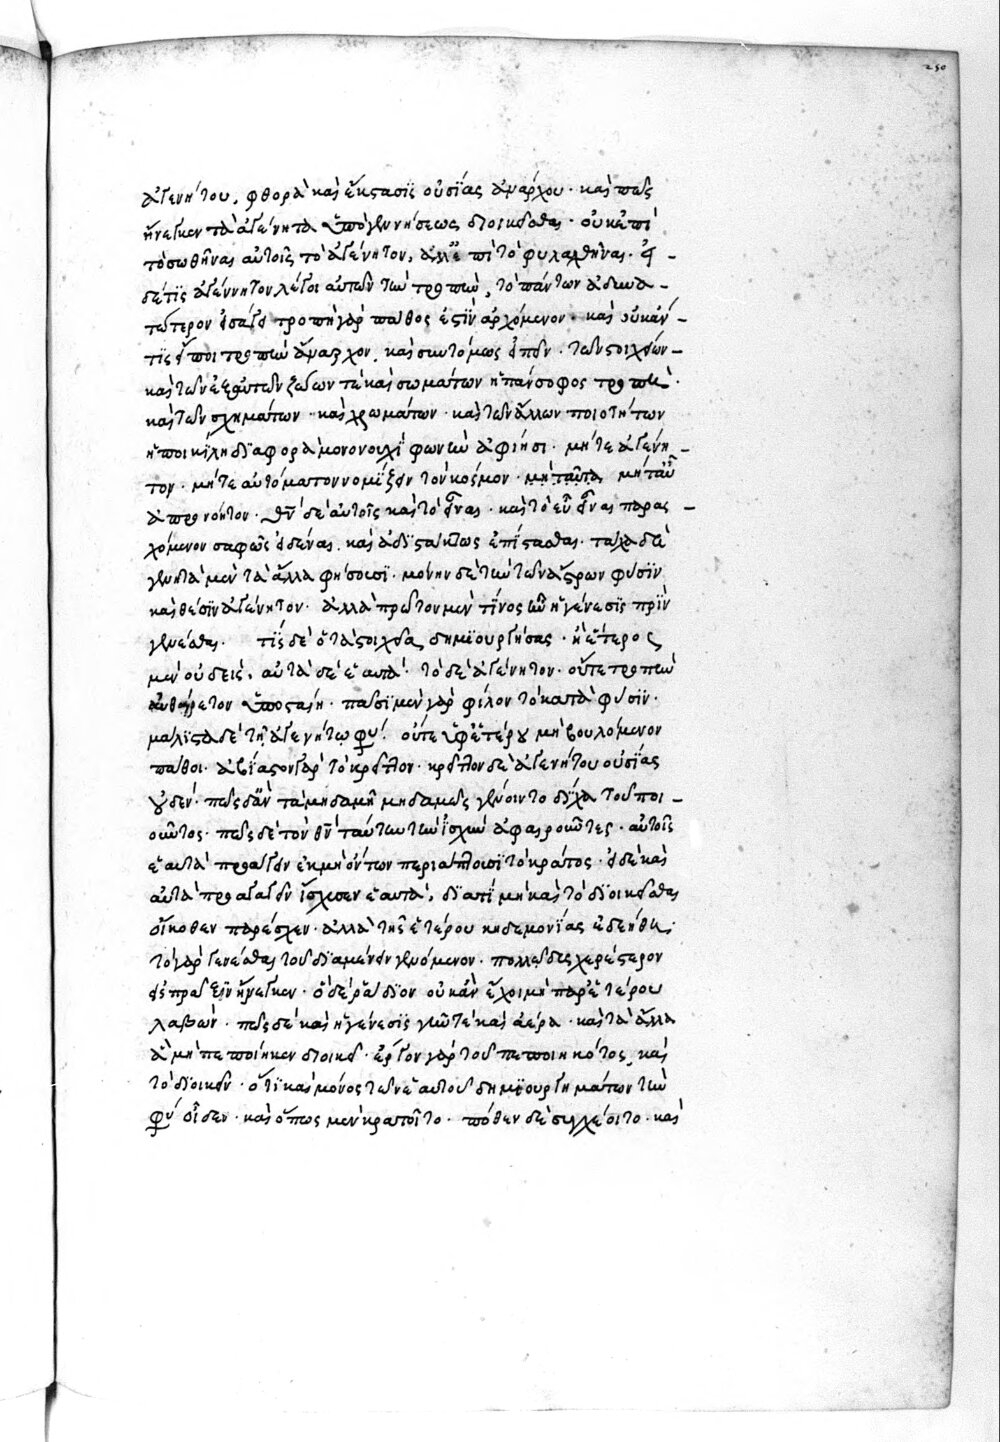 250
ἀγενήτου, φθορὰ καὶ ἔκστασις οὐσίας ἀνάρχου · καὶ πῶς
ἤνεγκεν τὰ ἀγένητα ὑπὸ γεννήσεως διοικεῖσθαι · οὐκ ἐπὶ
τὸ σωθῆναι αὐτοῖς τὸ ἀγένητον, ἀλλ' ἐπὶ τὸ φυλαχθῆναι · εἰ
δέ τις ἀγέννητον λέγοι αὐτῶν τὴν τροπὴν, τὸ πάντων ἀδυνα -
τώτερον εἰσάγει τροπὴ γὰρ πάθος ἐστὶν ἀρχόμενον · καὶ οὐκ ἄν
τις εἴποι τροπὴν ἄναρχον. καὶ συντόμως εἰπεῖν · τῶν στοιχείων
καὶ τῶν ἐξ αὐτῶν ζώων τὲ καὶ σωμάτων ἡ πάνσοφος τροπὴ ·
καὶ τῶν σχημάτων · καὶ χρωμάτων · καὶ τῶν ἄλλων ποιοτήτων
ἡ ποικίλη διαφορὰ μονονουχὶ φωνὴν ἀφίησι · μήτε ἀγένη -
τον · μήτε αὐτόματον νομίζειν τὸν κόσμον · μὴ ταῦτα μήτ' αὖ
ἀπρονόητον · θν δὲ αὐτοῖς καὶ τὸ εἶναι · καὶ τὸ εὖ εἶναι παρασ -
χόμενον σαφῶς εἰδέναι. καὶ ἀδιστάκτως ἐπίστασθαι · τάχα δὲ
γενητὰ μὲν τὰ ἄλλα φήσουσι · μόνην δὲ τὴν τῶν ἄστρων φύσιν
καὶ θέσιν ἀγένητον · ἀλλὰ πρῶτον μὲν τίνος ἦν ἡ γένεσις πρὶν
γενέσθαι · τίς δὲ ὁ τὰ στοιχεῖα δημιουργήσας · ἢ ἕτερος
μὲν οὐδείς, αὐτὰ δὲ ἑαυτά · τὸ δὲ ἀγένητον · οὔτε τροπὴν
αὐθαίρετον ὑποσταίη · πᾶσι μὲν γὰρ φίλον τὸ κατὰ φύσιν ·
μάλιστα δὲ τῇ ἀγενήτῳ φύ · οὔτε ὑφ' ἑτέρου μὴ βουλόμενον
πάθοι · ἀβίαστον γὰρ τὸ κρεῖττον · κρεῖττον δὲ ἀγενήτου οὐσίας
οὐδέν · πῶς δ' ἂν τὰ μηδαμῆ μηδαμῶς γένοιντο δίχα τοῦ ποι -
οῦντος · πῶς δὲ τὸν θν ταύτην τὴν ἰσχὺν ἀφαιροῦντες · αὐτοῖς
ἑαυτὰ προάγειν ἐκ μὴ ὄντων περιάπτουσι τὸ κράτος · εἰ δὲ καὶ
αὐτὰ προαγαγεῖν ἴσχυσεν ἑαυτά, διατί μὴ καὶ τὸ διοικεῖσθαι
οἴκοθεν παρέσχεν · ἀλλὰ τῆς ἑτέρου κηδεμονίας ἐδεήθη ·
τὸ γὰρ γενέσθαι τοῦ διαμένειν γενόμενον · πολλῷ δυσχερέστερον
εἰς πρᾶξιν ἤνεγκεν · ὁ δὲ ῥᾴδιον οὐκ ἂν ἔχοι μὴ παρ' ἑτέρου
λαβών · πῶς δὲ καὶ ἡ γένεσις γῆν τὲ καὶ ἀέρα · καὶ τὰ ἄλλα
ἃ μὴ πεποίηκεν διοικεῖ · ἔργον γὰρ τοῦ πεποιηκότος καὶ
τὸ διοικεῖν · ὅτι καὶ μόνος τῶν ἑαυτοῦ δημιουργημάτων τὴν
φύ οἶδεν · καὶ ὅπως μὲν κρατοῖτο · πόθεν δὲ συγχέοιτο · καὶ